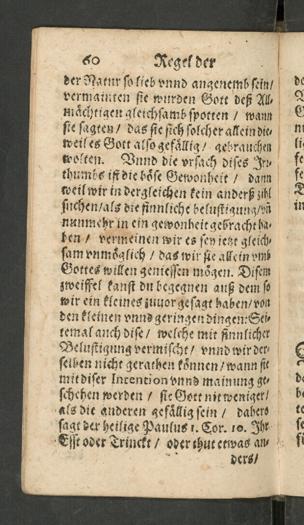 60 Regel der
der Natur so lieb vnnd angenemb sein/
vermainten sie wurden Gott deß All-
mächtigen gleichsamb spotten / wann
sie sagten / das sie sich solcher allein die-
weil es Gott also gefällig / gebrauchen
wolten. Vnnd die vrsach dises Jr-
thumbs ist die böse Gewonheit / dann
weil wir in dergleichen kein anderß zihl
suchen/als die sinnliche belustigung/vñ
nunmehr in ein gewonheit gebracht ha-
ben / vermeinen wir es sey jetzt gleich-
sam vnmöglich / das wir sie allein vmb
Gottes willen geniessen mögen. Disem
zweiffel kanst du begegnen auß dem so
wir ein kleines zuuor gesagt haben/von
den kleinen vnnd geringen dingen: Sei-
temal auch dise / welche mit sinnlicher
Belustigung vermischt / vnnd wir der-
selben nicht gerathen können/wann sie
mit diser Intention vnnd mainung ge-
schehen werden / sie Gott nit weniger/
als die anderen gefällig sein / dahero
sagt der heilige Paulus 1. Cor. 10. Ihr
Esst oder Trinckt / oder thut etwas an-
ders/